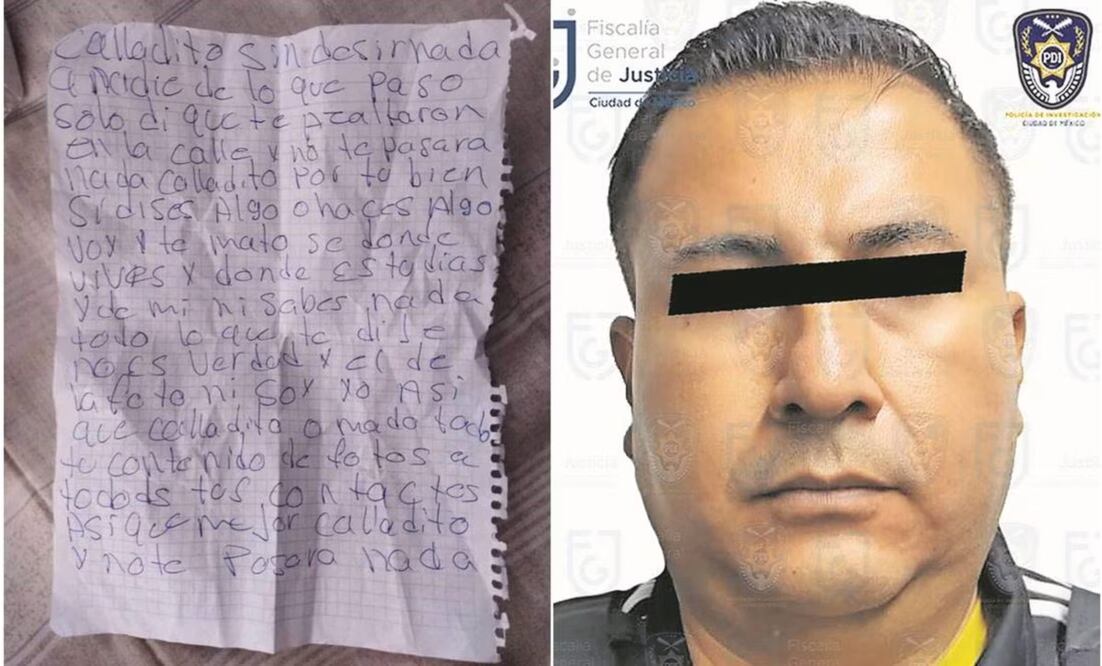 calladito sin desir nada
a nadie de lo que paso
solo di que te azaltaron
en la calle y no te pasara
nada calladito por tu bien
Si dises Algo o haces Algo
voy y te mato se donde
vives y donde Estudias
y de mi ni sabes nada
todo lo que te dije
no es verdad y el de
la foto ni soy yo Asi
que calladito o mado todo
tu contenido de fotos a
todods tus contactos
Asi que mejor calladito
y no te Pasara nada
Fiscalía
General
de Justicia
Ciudad de México
PDI
POLICÍA DE INVESTIGACIÓN
CIUDAD DE MÉXICO